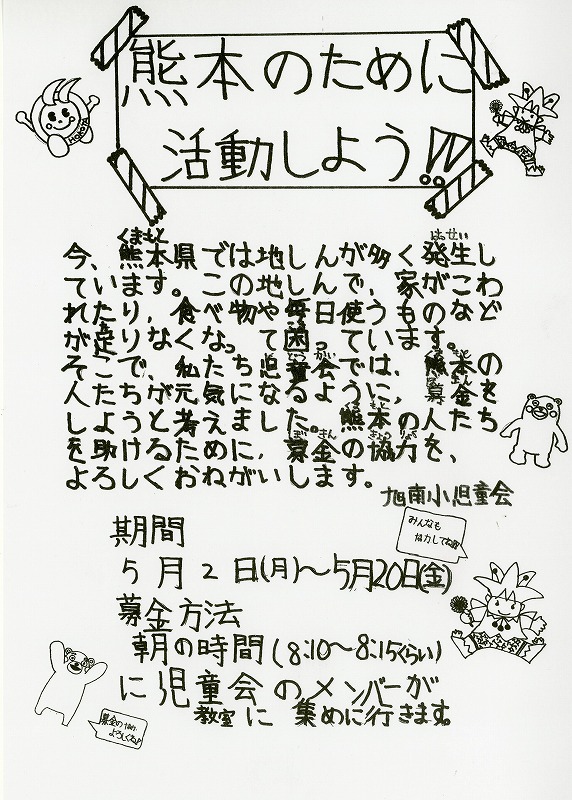 熊本のために
活動しよう!!
今、熊本県では地しんが多く発生し
ています。この地しんで、家がこわ
れたり、食べ物や毎日使うものなど
が足りなくなって困っています。
そこで、私たち児童会では、熊本の
人たちが元気になるように、募金を
しようと考えました。熊本の人たち
を助けるために、募金の協力を、
よろしくおねがいします。
旭南小児童会
みんなも
協力してね!!
期間
5月2日(月)～5月20日(金)
募金方法
朝の時間(8:10～8:15くらい)
に児童会のメンバーが
教室に集めに行きます。
募金のほど
よろしくね♪